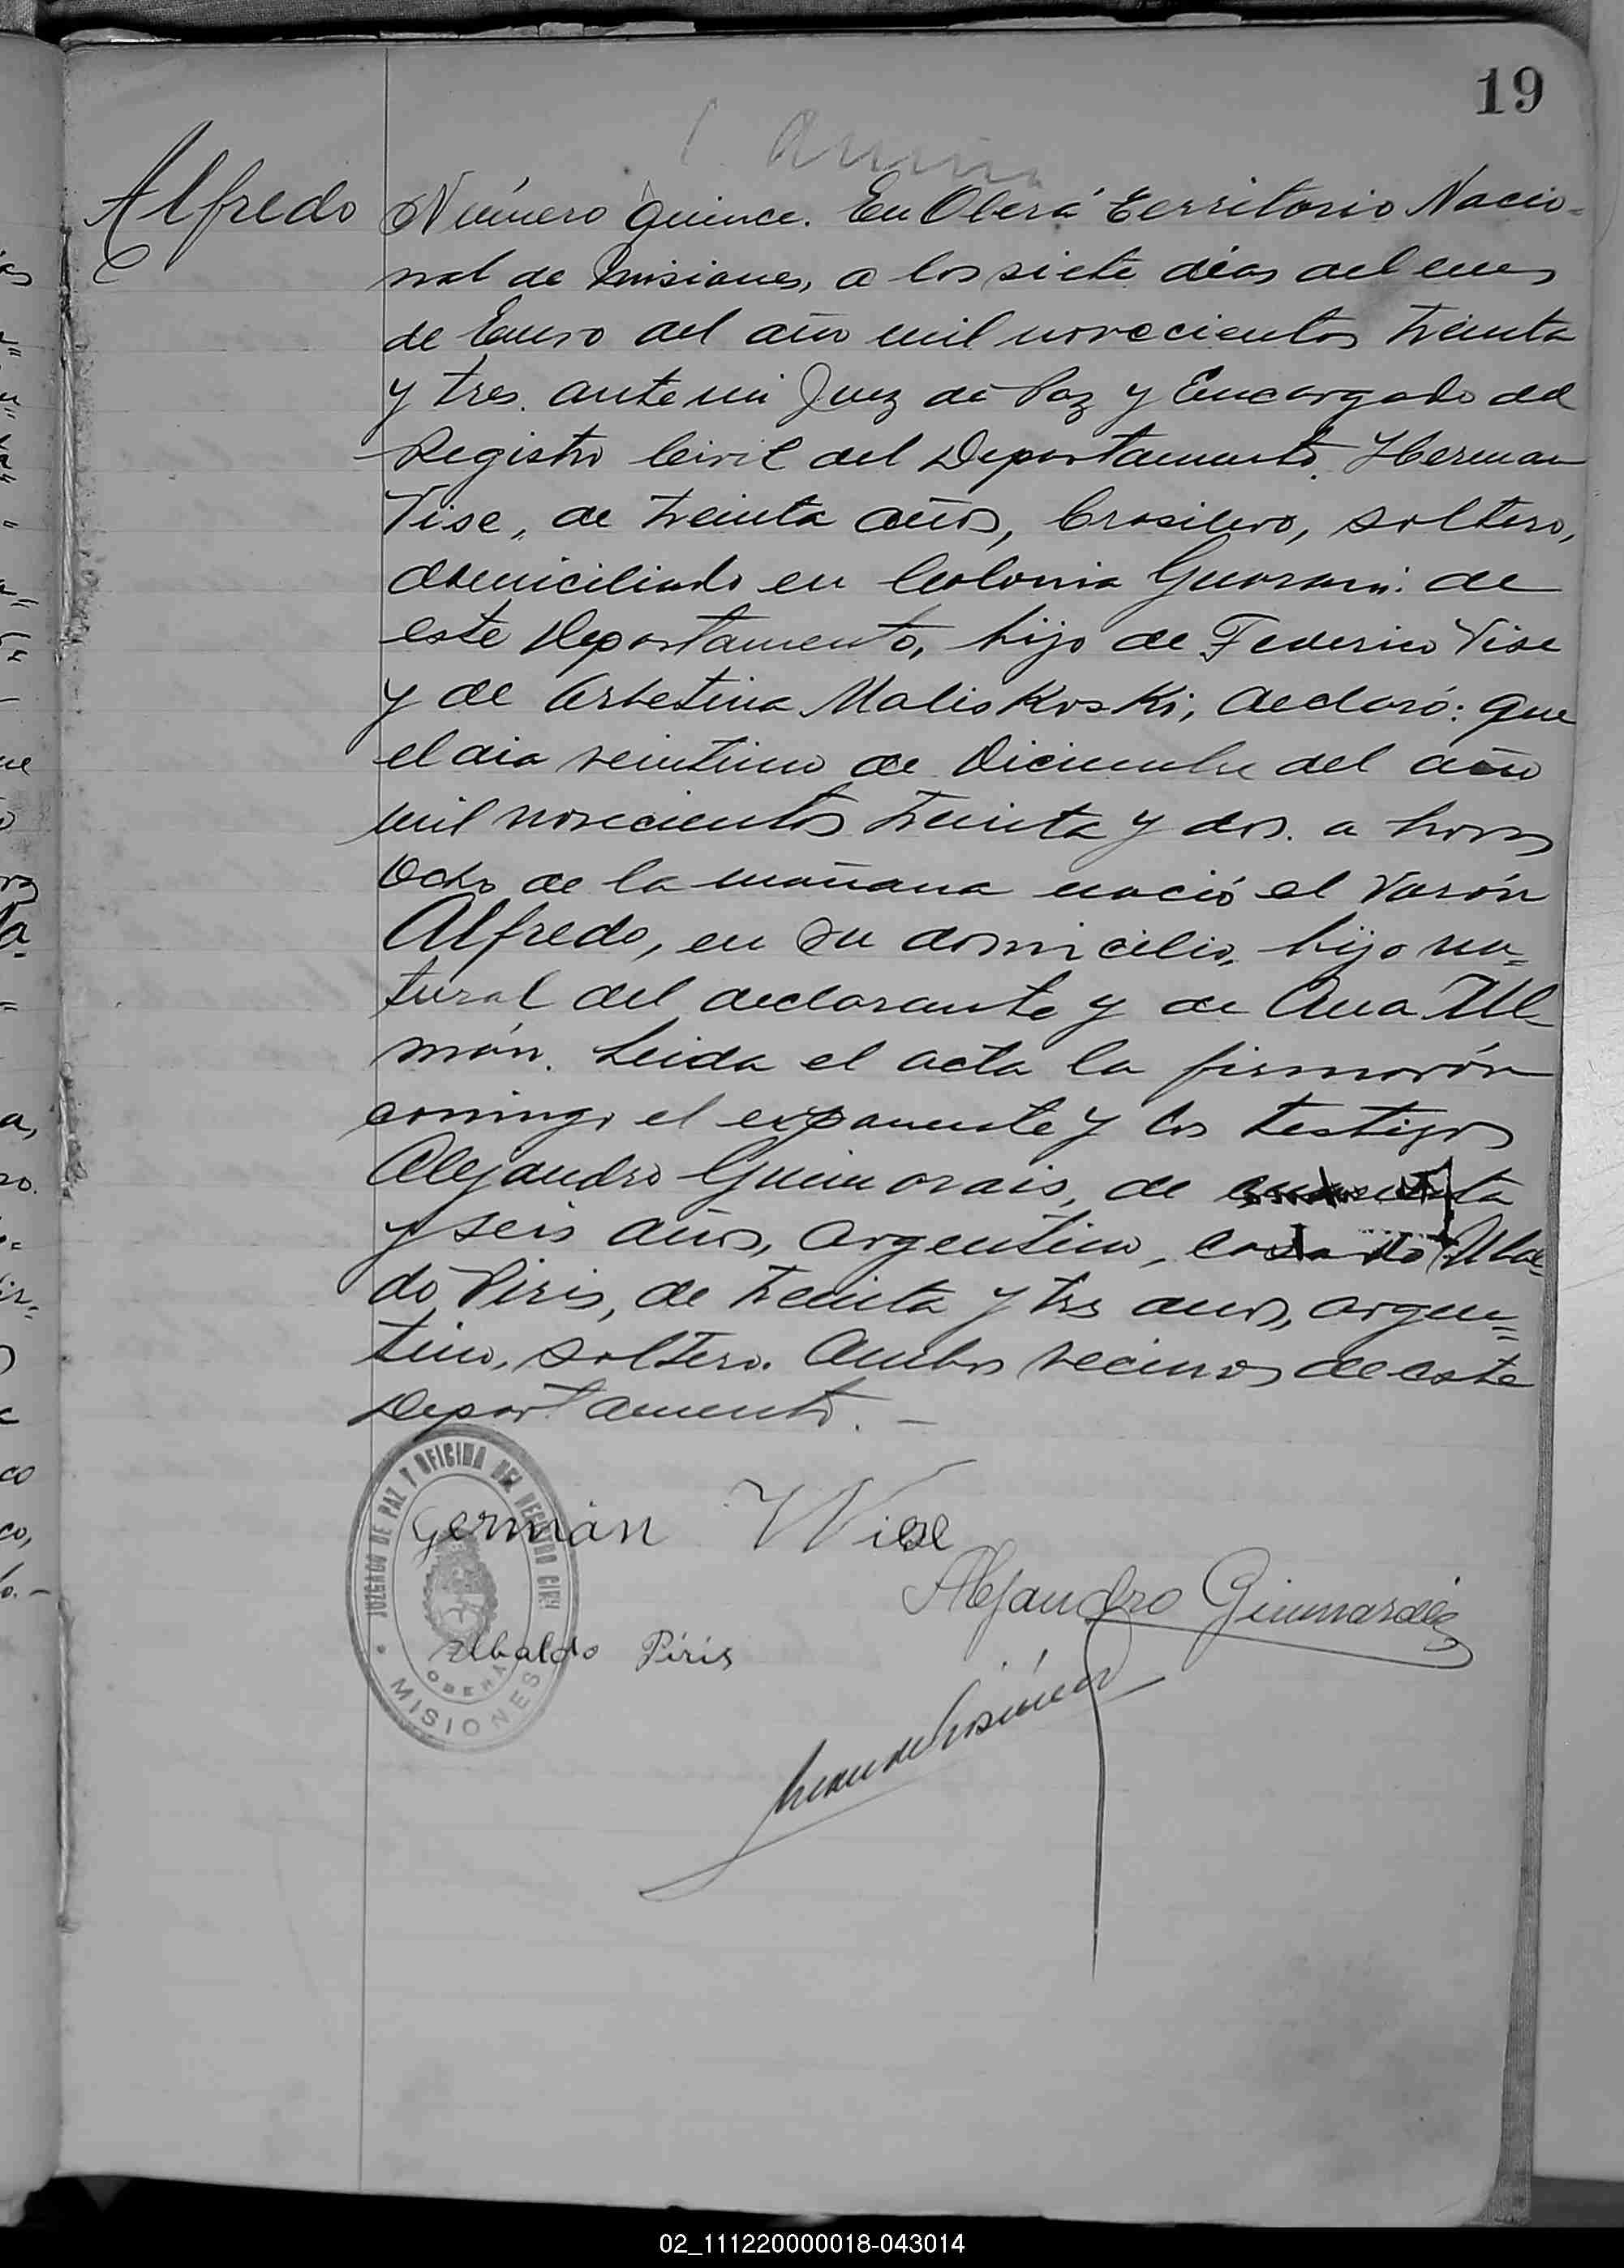 19
Alfredo
Número quince. En Oberá Territorio Nacio=
nal de Misiones, a los siete dias del mes
de Enero del año mil novecientos treinta
y tres. ante mi Juez de Paz y Encargado del
Registro Civil del Departamento. Herman
Vise, de treinta años, brasilero, soltero,
domiciliado en Colonia Guaraní de
este Departamento, hijo de Federico Vise
y de Erbetina Maliskoski, declaró: que
el dia veintiuno de Diciembre del año
mil novecientos treinta y dos. a horas
Ocho de la mañana nació el varón
Alfredo, en su domicilio, hijo na=
tural del declarante y de Ana Ul
mán. Leida el acta la firmarón
comingo el exponente y los testigos
Alejandro Guimarais, de
y seis años, argentino, casado Ubal=
do Piris, de treinta y tres anos, argen=
tino, soltero. Ambos vecinos de este
Departamento. —
Germán Wiese
Alejandro Gimmardis
Ubaldo Piris
JUZGADO DE PAZ Y OFICINA DEL REGISTRO CIVIL
OBERA
MISIONES
02_111220000018-043014